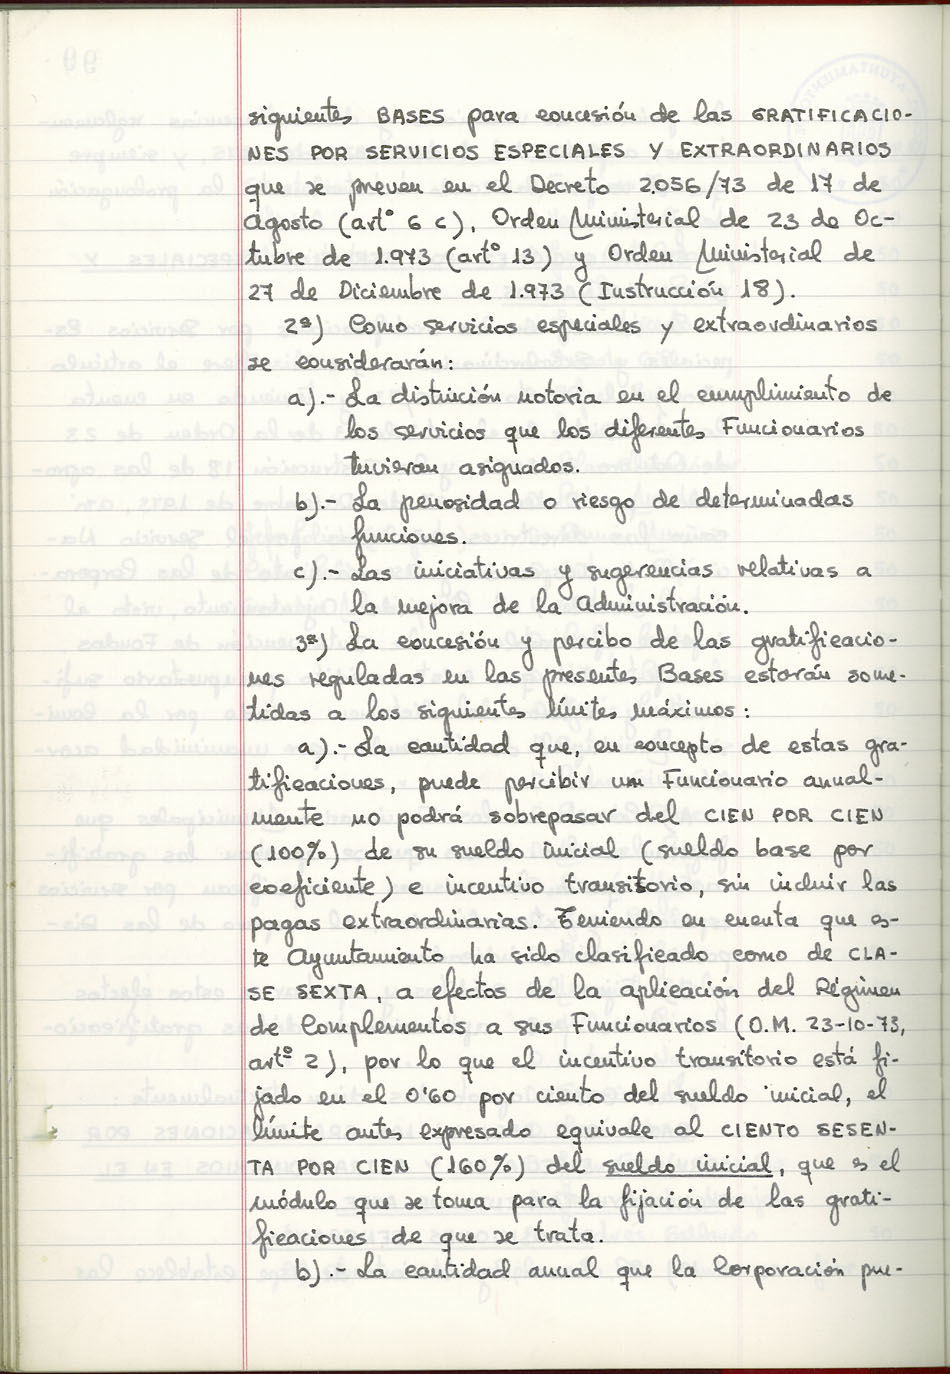 siguientes BASES para concesión de las GRATIFICACIO-
NES POR SERVICIOS ESPECIALES Y EXTRAORDINARIOS
que se preven en el Decreto 2.056/73 de 17 de
Agosto (artº 6 c), Orden Ministerial de 23 de Oc-
tubre de 1.973 (artº 13) y Orden Ministerial de
27 de Diciembre de 1.973 (Instrucción 18).
2ª) Como servicios especiales y extraordinarios
se considerarán:
a).- La distinción notoria en el cumplimiento de
los servicios que los diferentes Funcionarios
tuvieran asignados.
b).- La penosidad o riesgo de determinadas
funciones.
c).- Las iniciativas y sugerencias relativas a
la mejora de la Administración.
3ª) La concesión y percibo de las gratificacio-
nes reguladas en las presentes Bases estarán some-
tidas a los siguientes límites máximos:
a).- La cantidad que, en concepto de estas gra-
tificaciones, puede percibir un Funcionario anual-
mente no podrá sobrepasar del CIEN POR CIEN
(100%) de su sueldo inicial (sueldo base por
coeficiente) e incentivo transitorio, sin incluir las
pagas extraordinarias. Teniendo en cuenta que es-
te Ayuntamiento ha sido clasificado como de CLA-
SE SEXTA, a efectos de la aplicación del Régimen
de Complementos a sus Funcionarios (O.M. 23-10-73,
artº 2), por lo que el incentivo transitorio está fi-
jado en el 0'60 por ciento del sueldo inicial, el
límite antes expresado equivale al CIENTO SESEN-
TA POR CIEN (160%) del sueldo inicial, que es el
módulo que se toma para la fijación de las grati-
ficaciones de que se trata.
b).- La cantidad anual que la Corporación pue-